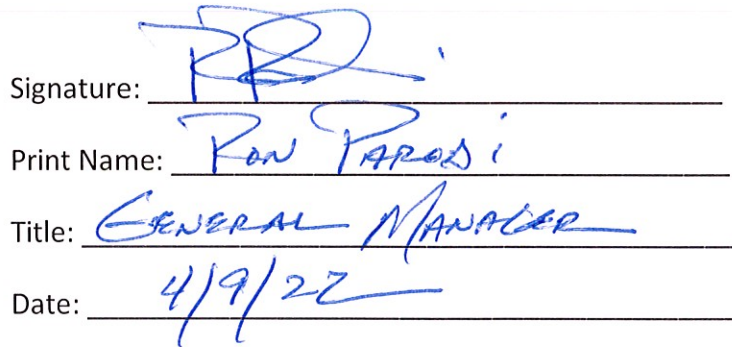 Signature:
Print Name: Ron Parodi
Title: General Manager
Date: 4/9/22